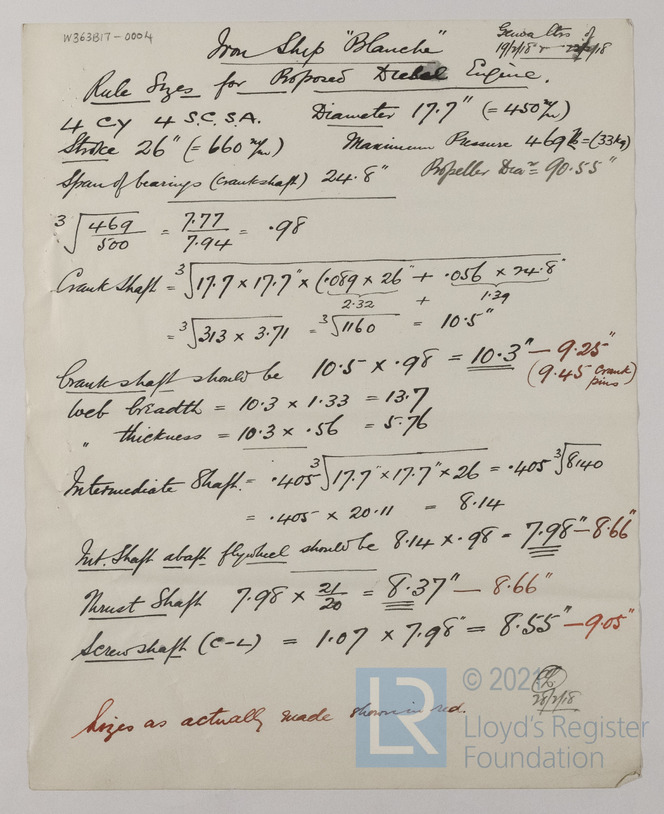 W363B17-0004
Genoa Ltrs of
19/2/18
Iron Ship "Blanche"
Rule Sizes for Proposed Diesel Engine.
4 CY 4 S.C.S.A. Diameter 17.7" (= 450 m/m)
Stroke 26" (= 660 m/m) Maximum Pressure 469 lb = (33kg)
Span of bearings (Crankshaft) 24.8" Propeller Diar = 90.55"
3√469/500 = 7.77/7.94 = .98
Crank Shaft = 3√17.7 × 17.7" × (.089 × 26" + .056 × 24.8"
2.32 + 1.39
= 3√313 × 3.71 = 3√1160 = 10.5"
Crankshaft should be 10.5 × .98 = 10.3" — 9.25"
(9.45 crank pins)
Web breadth = 10.3 × 1.33 = 13.7
" thickness = 10.3 × .56 = 5.76
Intermediate Shaft. = .405 3√17.7" × 17.7" × 26 = .405 3√8140
= .405 × 20.11 = 8.14
Int. Shaft abaft flywheel should be 8.14 × .98 = 7.98" — 8.66"
Thrust Shaft 7.98 × 21/20 = 8.37" — 8.66"
Screwshaft (C-L) = 1.07 × 7.98" = 8.55" — 9.05"
28/2/18
Sizes as actually made shown in red.
LR © 2021
Lloyd's Register
Foundation